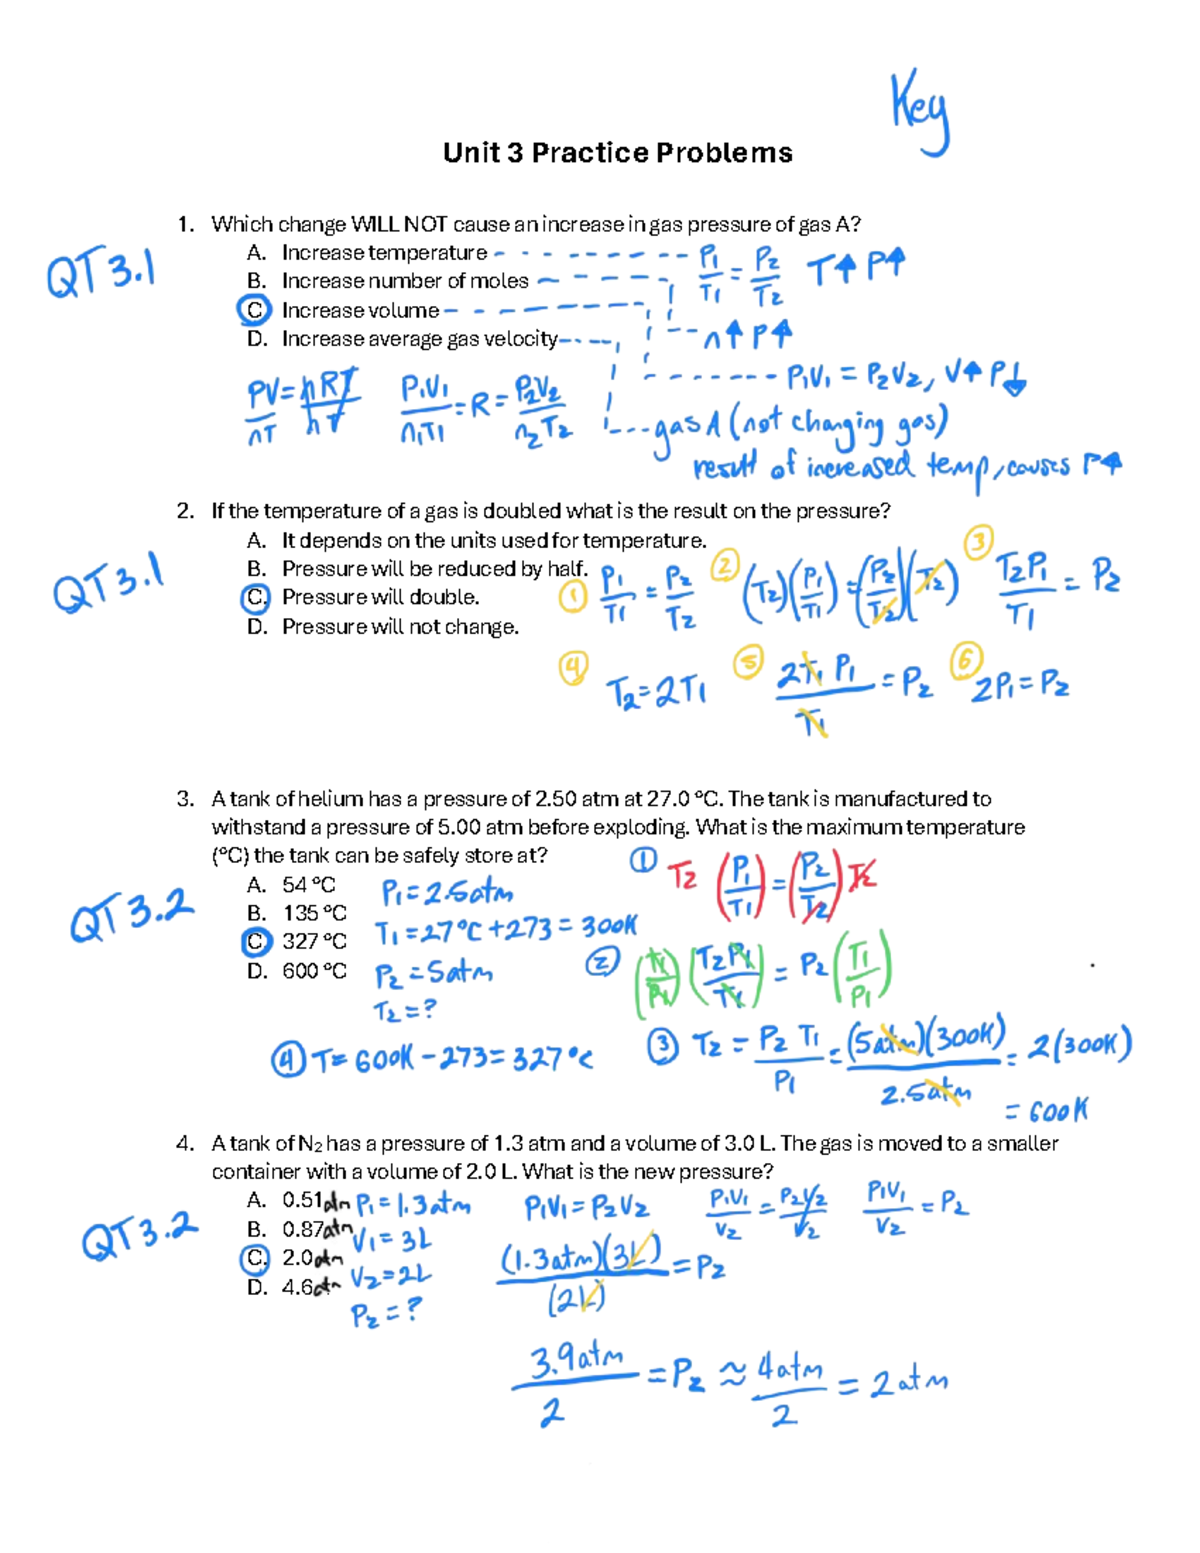 Key
Unit 3 Practice Problems
1. Which change WILL NOT cause an increase in gas pressure of gas A?
QT 3.1
A. Increase temperature P1/T1 = P2/T2 T↑ P↑
B. Increase number of moles
C. Increase volume
n↑ P↑
D. Increase average gas velocity
P1V1 = P2V2, V↑ P↓
PV/nT = nRT/nT P1V1/n1T1 = R = P2V2/n2T2
gas A (not changing gas)
result of increased temp, causes P↑
2. If the temperature of a gas is doubled what is the result on the pressure?
QT 3.1
A. It depends on the units used for temperature.
B. Pressure will be reduced by half.
C. Pressure will double.
D. Pressure will not change.
① P1/T1 = P2/T2 ② (T2)(P1/T1) = (P2/T2)(T2) ③ T2P1/T1 = P2
④ T2 = 2T1 ⑤ 2T1 P1/T1 = P2 ⑥ 2P1 = P2
3. A tank of helium has a pressure of 2.50 atm at 27.0 ºC. The tank is manufactured to
withstand a pressure of 5.00 atm before exploding. What is the maximum temperature
(ºC) the tank can be safely store at?
QT 3.2
A. 54 ºC
B. 135 ºC
C. 327 ºC
D. 600 ºC
P1 = 2.5atm
T1 = 27°C + 273 = 300K
P2 = 5atm
T2 = ?
① T2 (P1/T1) = (P2/T2) T2
② (T1/P1) (T2P1/T1) = P2 (T1/P1)
③ T2 = P2 T1/P1 = (5atm)(300K)/2.5atm = 2(300K)
= 600K
④ T = 600K - 273 = 327°C
4. A tank of N2 has a pressure of 1.3 atm and a volume of 3.0 L. The gas is moved to a smaller
container with a volume of 2.0 L. What is the new pressure?
QT 3.2
A. 0.51 atm
B. 0.87 atm
C. 2.0 atm
D. 4.6 atm
P1 = 1.3atm
V1 = 3L
V2 = 2L
P2 = ?
P1V1 = P2V2 P1V1/V2 = P2V2/V2 P1V1/V2 = P2
(1.3atm)(3L)/(2L) = P2
3.9atm/2 = P2 ≈ 4atm/2 = 2atm